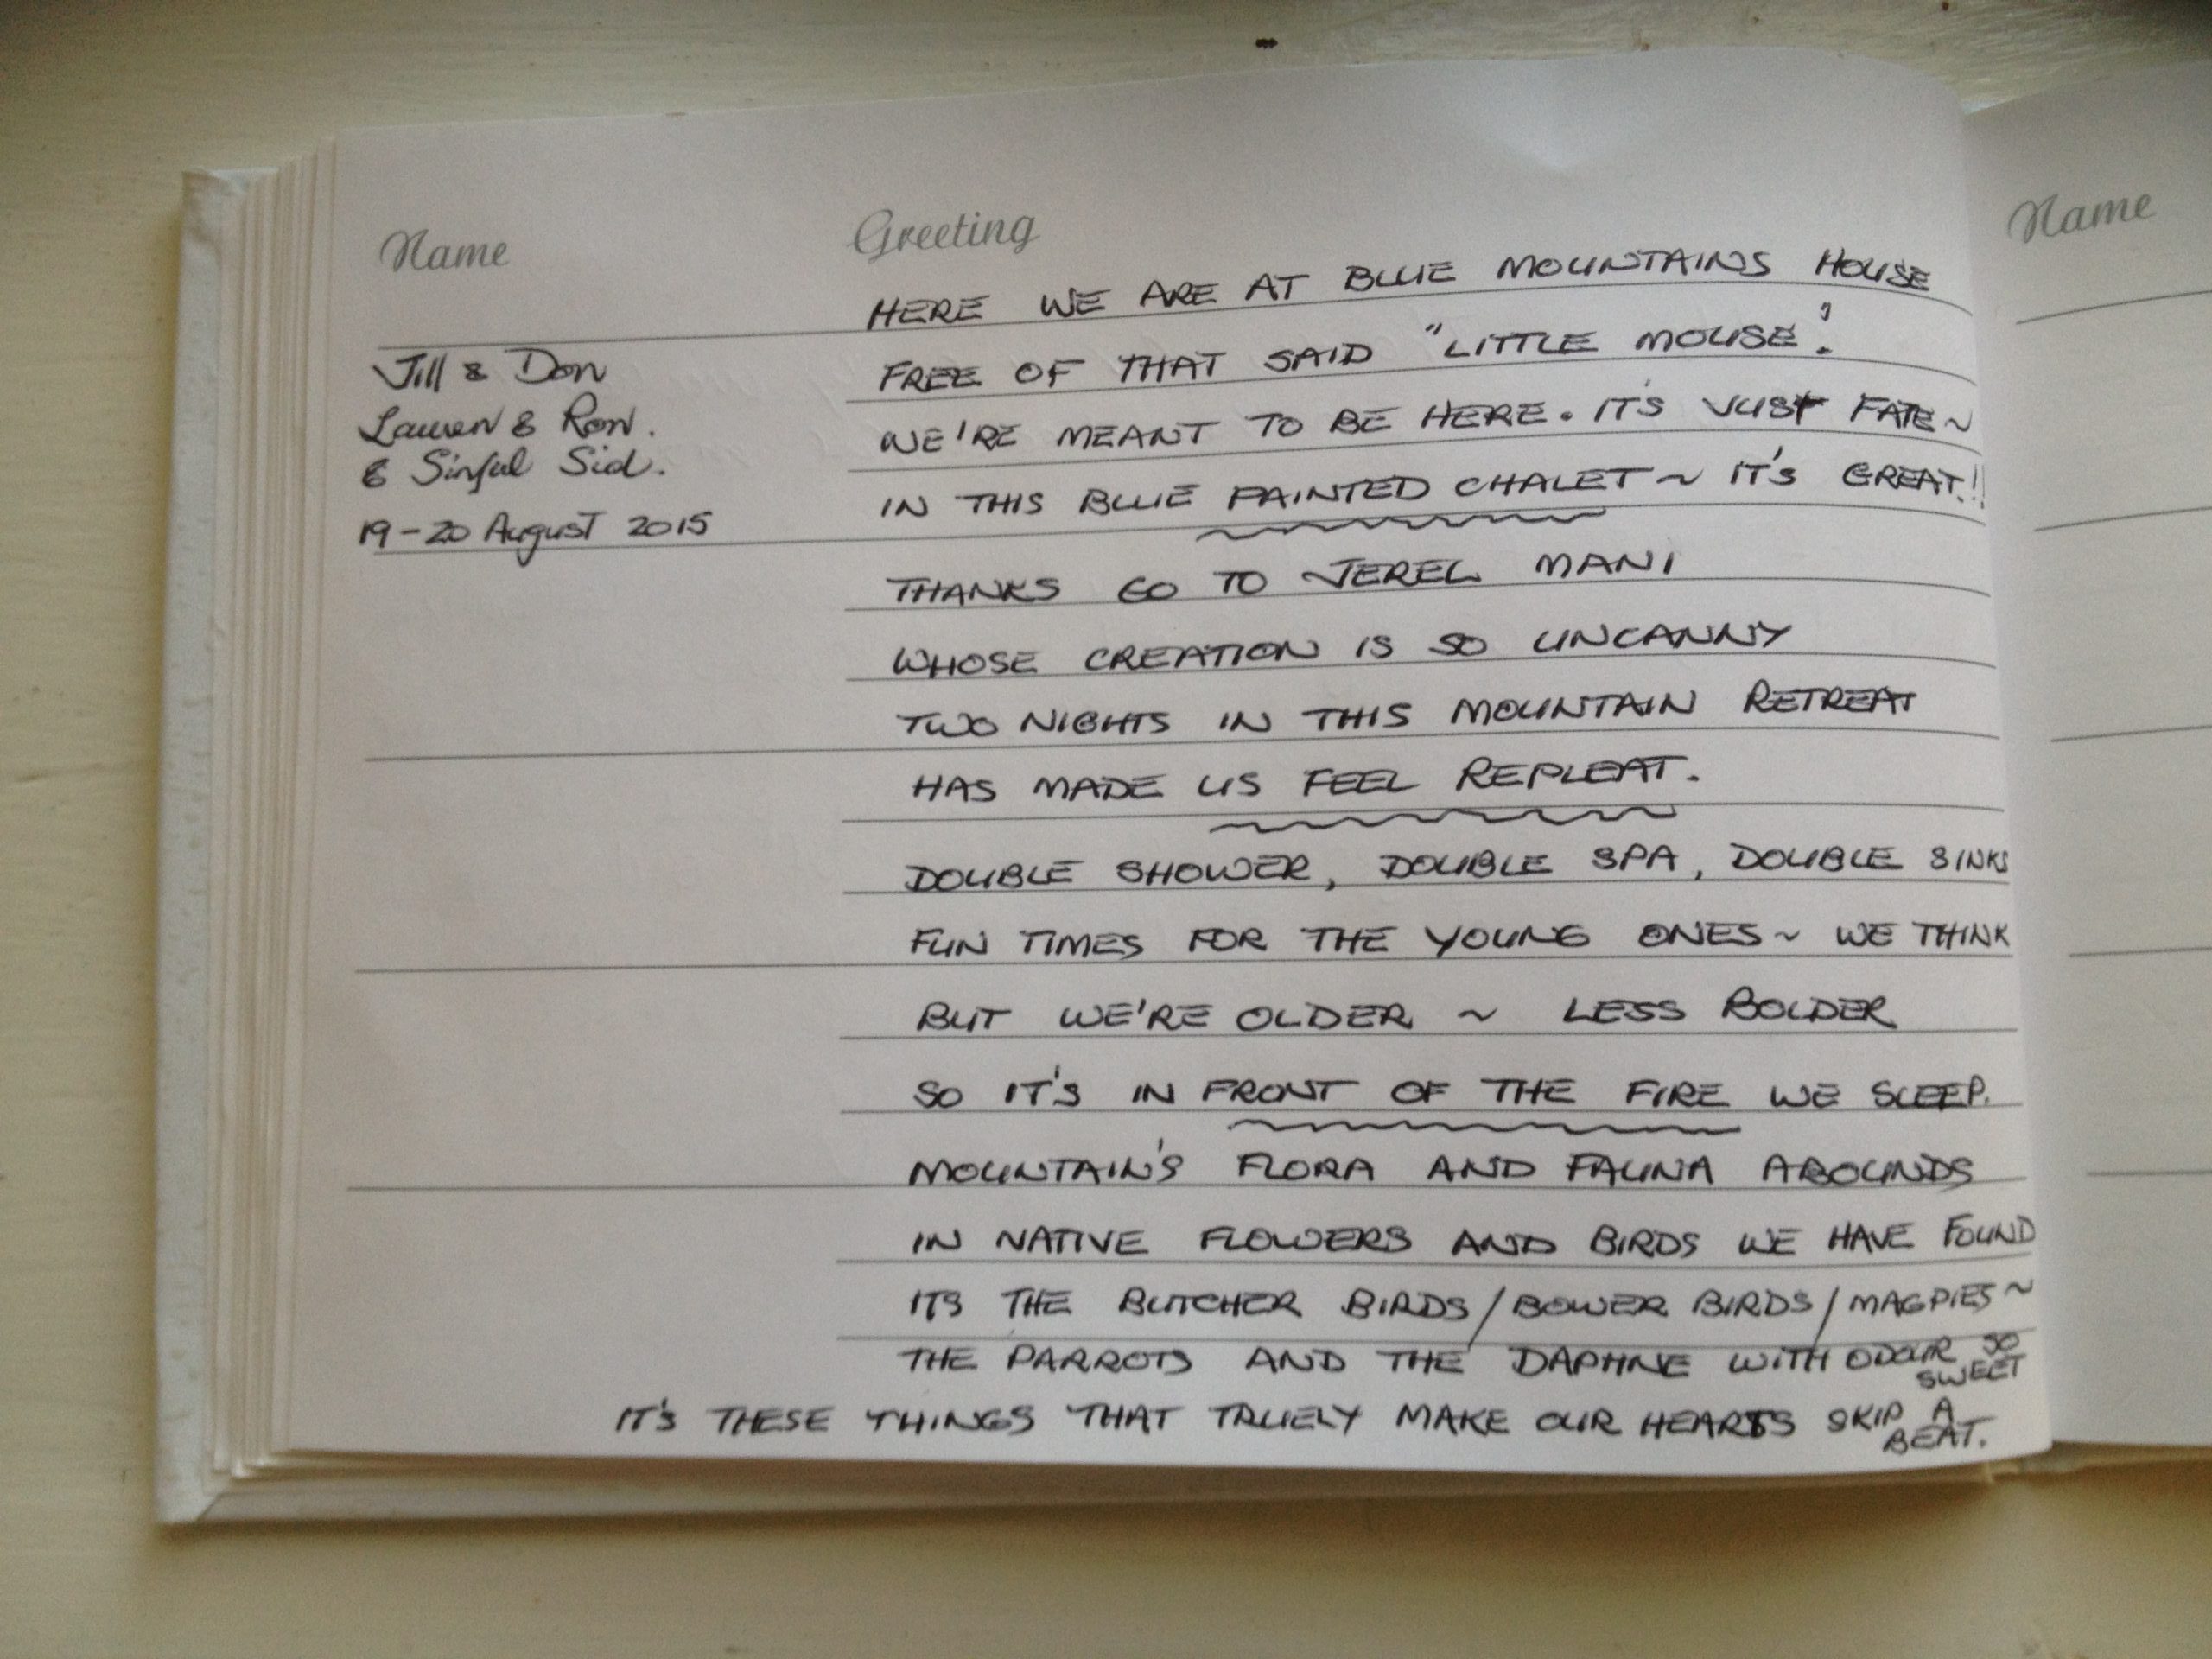 Name
Greeting
Name
Jill & Don
Lauren & Ron.
& Sinful Sid.
19-20 August 2015
HERE WE ARE AT BLUE MOUNTAINS HOUSE
FREE OF THAT SAID "LITTLE MOUSE".
WE'RE MEANT TO BE HERE. IT'S JUST FATE ~
IN THIS BLUE PAINTED CHALET ~ IT'S GREAT!!
THANKS GO TO JEREL MANI
WHOSE CREATION IS SO UNCANNY
TWO NIGHTS IN THIS MOUNTAIN RETREAT
HAS MADE US FEEL REPLEAT.
DOUBLE SHOWER, DOUBLE SPA, DOUBLE SINKS
FUN TIMES FOR THE YOUNG ONES ~ WE THINK
BUT WE'RE OLDER ~ LESS BOLDER
SO IT'S IN FRONT OF THE FIRE WE SLEEP.
MOUNTAIN'S FLORA AND FAUNA ABOUNDS
IN NATIVE FLOWERS AND BIRDS WE HAVE FOUND
ITS THE BUTCHER BIRDS/BOWER BIRDS/MAGPIES ~
THE PARROTS AND THE DAPHNE WITH ODOUR SO
SWEET
IT'S THESE THINGS THAT TRUELY MAKE OUR HEARTS SKIP A
BEAT.